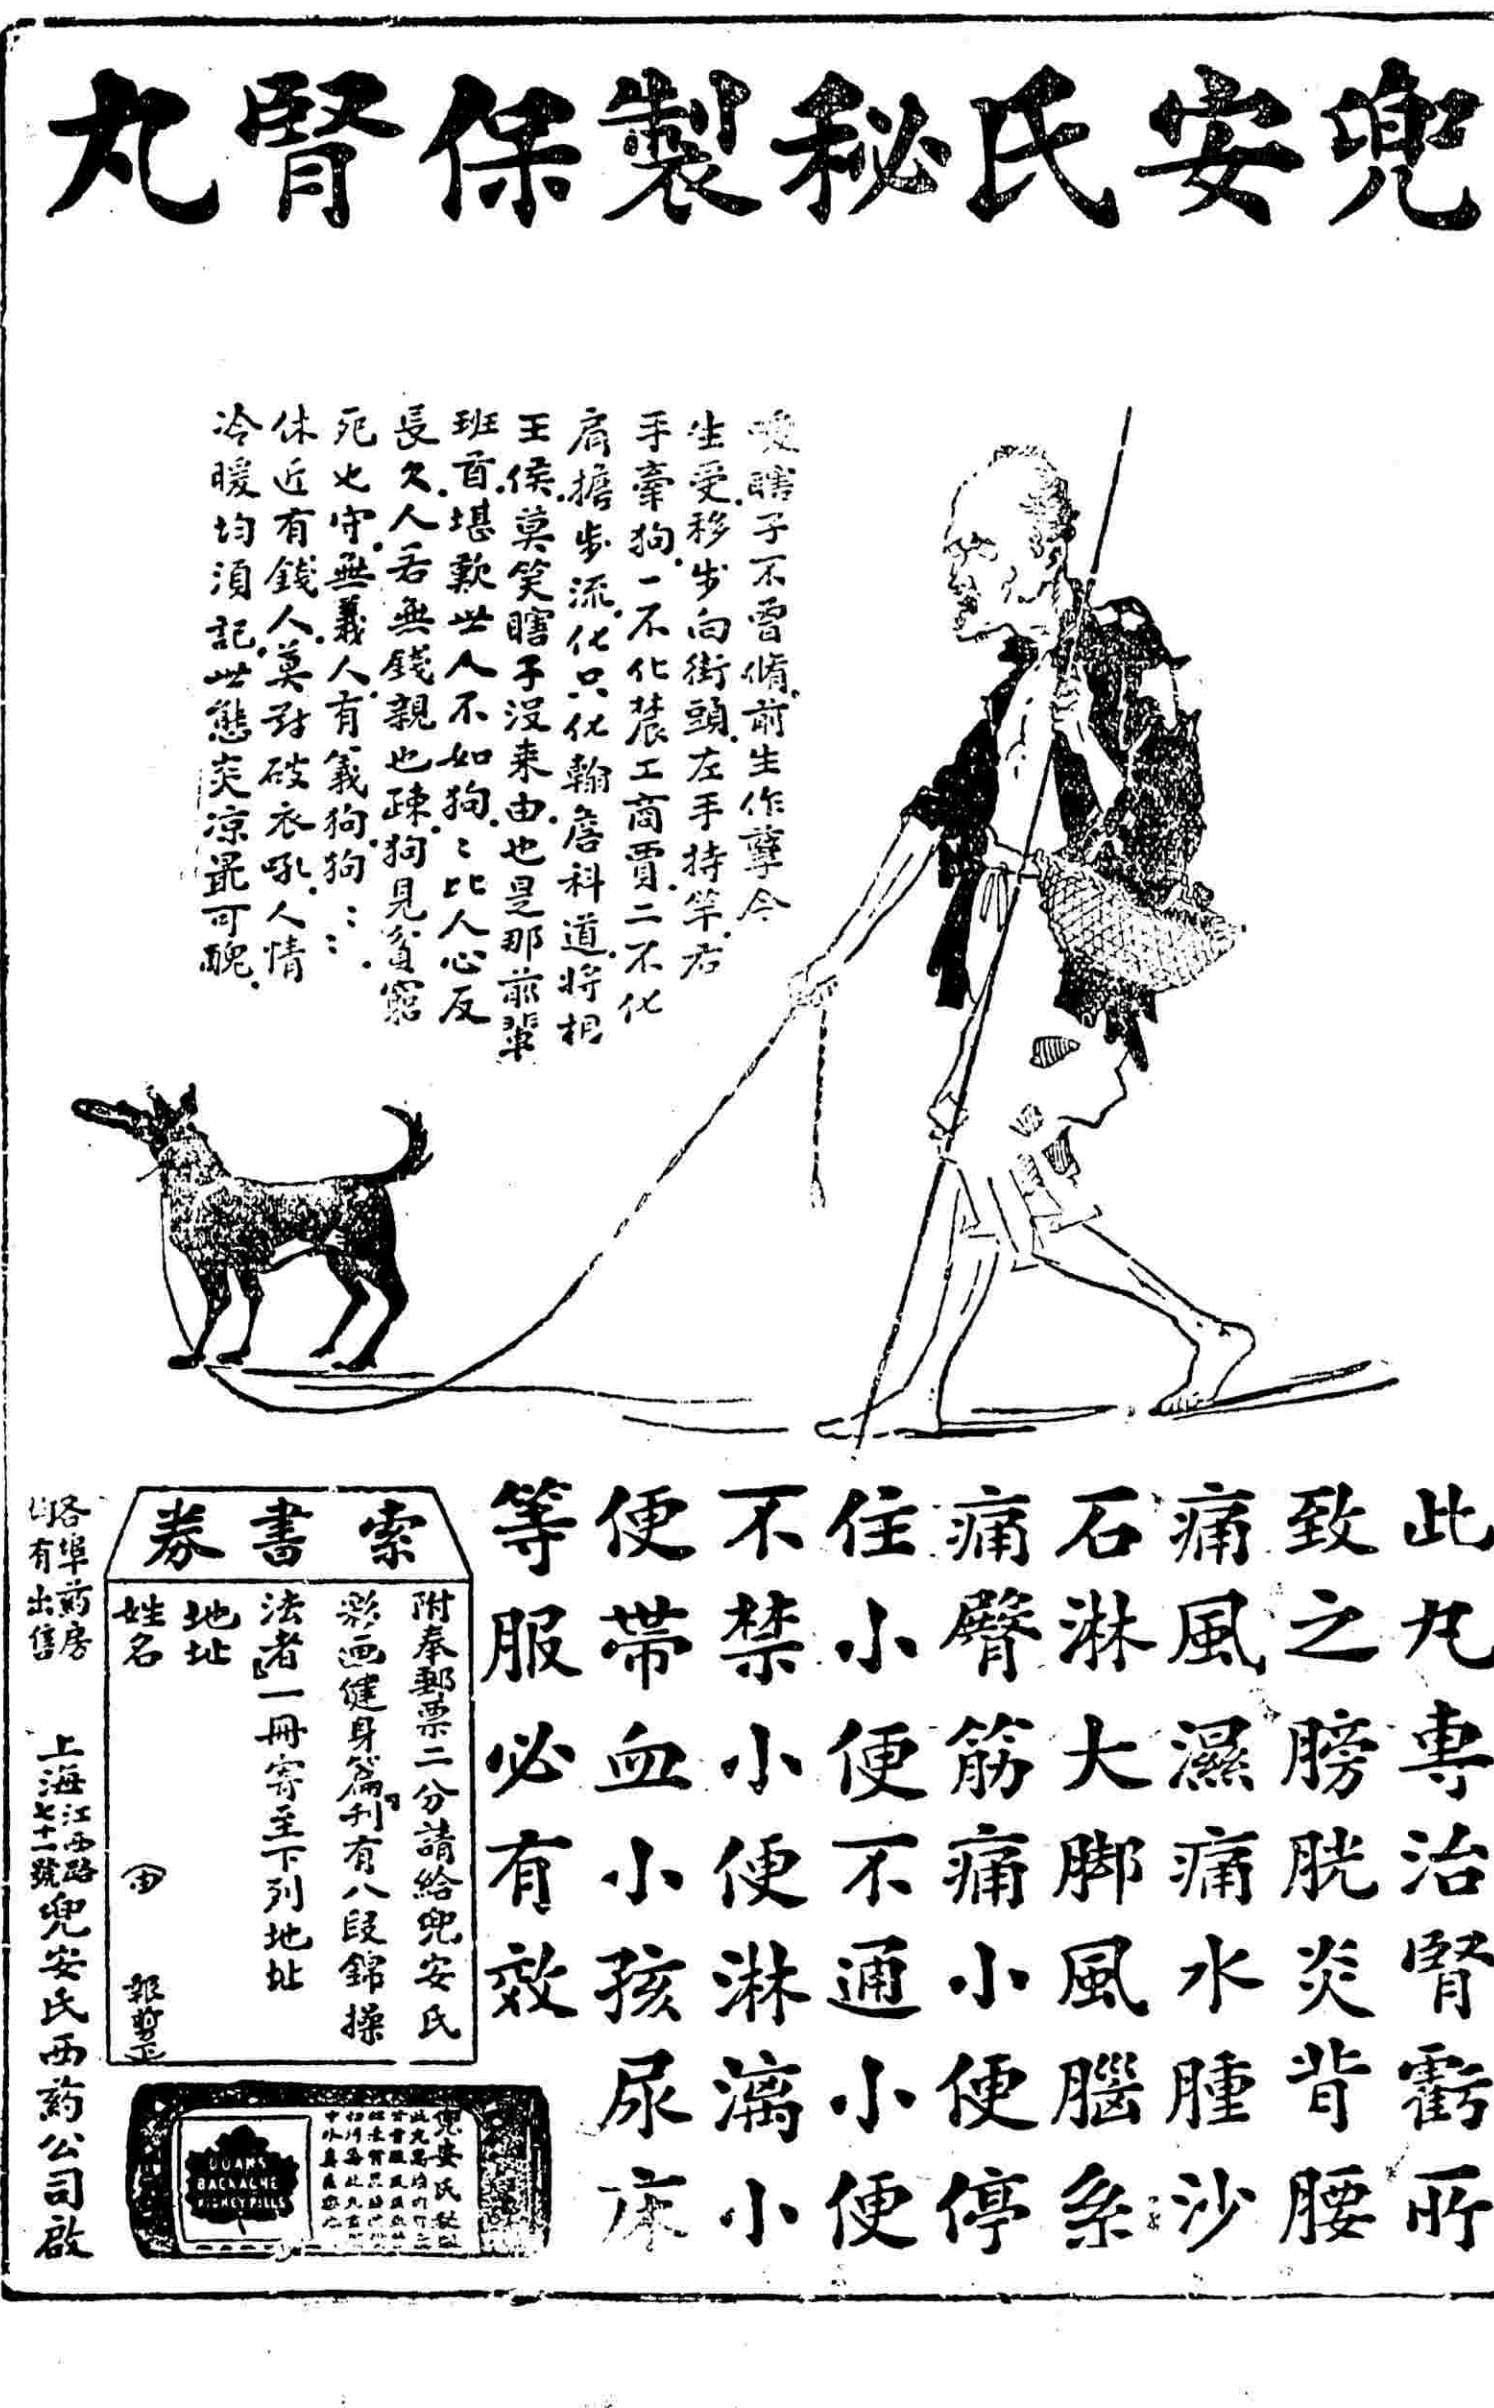 兜安氏秘製保腎丸
嘆瞎子不曾脩前生作孽今
生受移步向街頭左手持竿右
手牽狗一不化農工商賈二不化
肩擔步流化只化翰詹科道將相
王侯莫笑瞎子沒來由也是那前輩
班首堪歎世人不如狗〻比人心反
長久人若無錢親也疎狗見貧窮
死也守無義人有義狗狗〻〻
休近有錢人莫對破衣吼人情
冷暖均須記世態炎凉最可醜
此丸專治腎虧所
致之膀胱炎背腰
痛風濕痛水腫沙
石淋大脚風腦系
痛臀筋痛小便停
住小便不通小便
不禁小便淋漓小
便帶血小孩尿床
等服必有效
索書券
附奉郵票二分請給兜安氏
彩画健身篇刊有八段錦操
法者一冊寄至下列地址
地址
姓名
各埠葯房
均有出售
上海江西路
七十一號
兜安氏西葯公司啟
DOANS
BACKACHE
KIDNEY PILLS